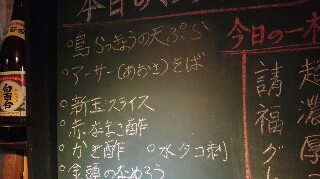 本日の
島らっきょうの天ぷら
アーサー(あおさ)そば
新玉スライス
赤なまこ酢
かき酢 水タコ刺
金頭のなめろう
今日の一本
超濃厚
請福グ
白百合